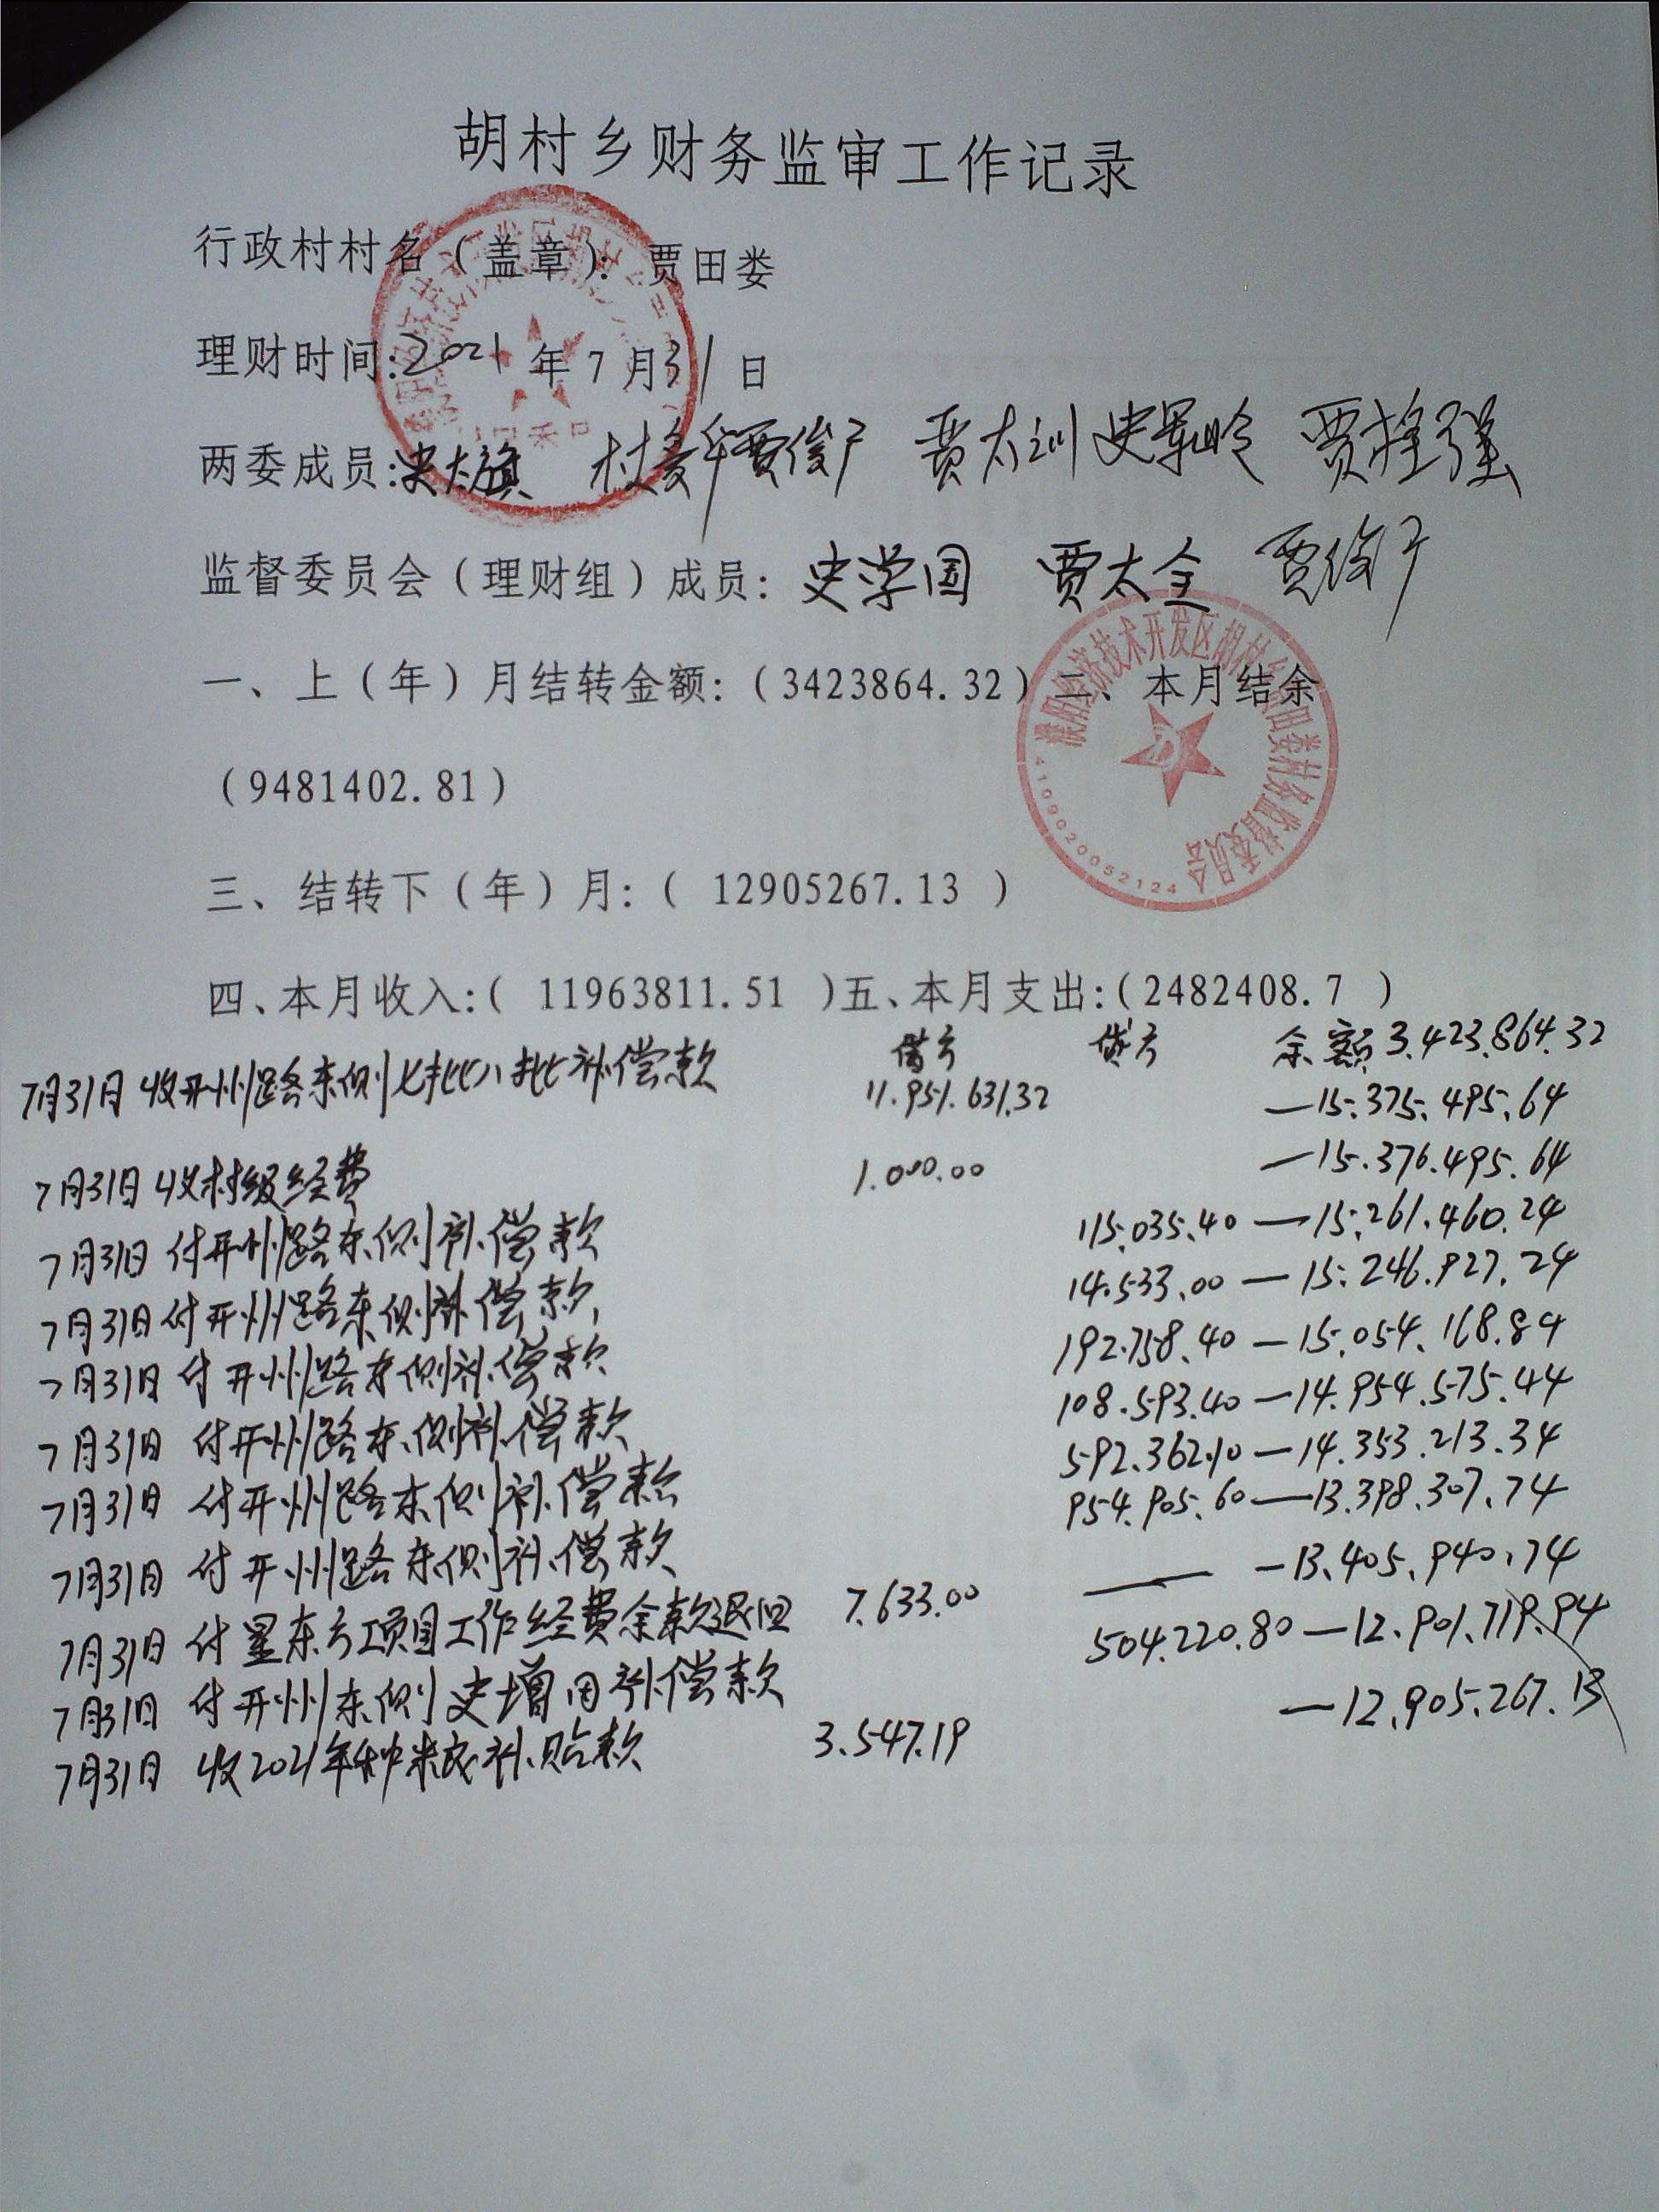 胡村乡财务监审工作记录
行政村村名（盖章）：贾田娄
理财时间:2021年7月31日
两委成员:史太旗 贾俊广 贾太训 史军岭 贾拴强
监督委员会（理财组）成员：史学国 贾太全 贾俊广
一、上（年）月结转金额：（3423864.32）二、本月结余
（9481402.81）
濮阳经济技术开发区胡村乡贾田娄村务监督委员会
4109020052124
三、结转下（年）月：（ 12905267.13 ）
四、本月收入:（ 11963811.51 ）五、本月支出:（2482408.7 ）
借方 贷方 余额3.423.864.32
7月31日收开州路东侧七批八批补偿款 11.951.631.32 —15.375.495.64
7月31日收村级经费 1.000.00 —15.376.495.64
7月31日付开州路东侧补偿款 115.035.40—15.261.460.24
7月31日付开州路东侧补偿款 14.533.00—15.246.927.24
7月31日付开州路东侧补偿款 192.758.40—15.054.168.84
7月31日付开州路东侧补偿款 108.593.40—14.954.575.44
7月31日付开州路东侧补偿款 592.362.10—14.353.213.34
7月31日付开州路东侧补偿款 954.905.60—13.398.307.74
7月31日付星东方项目工作经费余款退回 7.633.00 — —13.405.940.74
7月31日付开州东侧史增田补偿款 504.220.80—12.901.719.94
7月31日收2021年种粮补贴款 3.547.19 —12.905.267.13